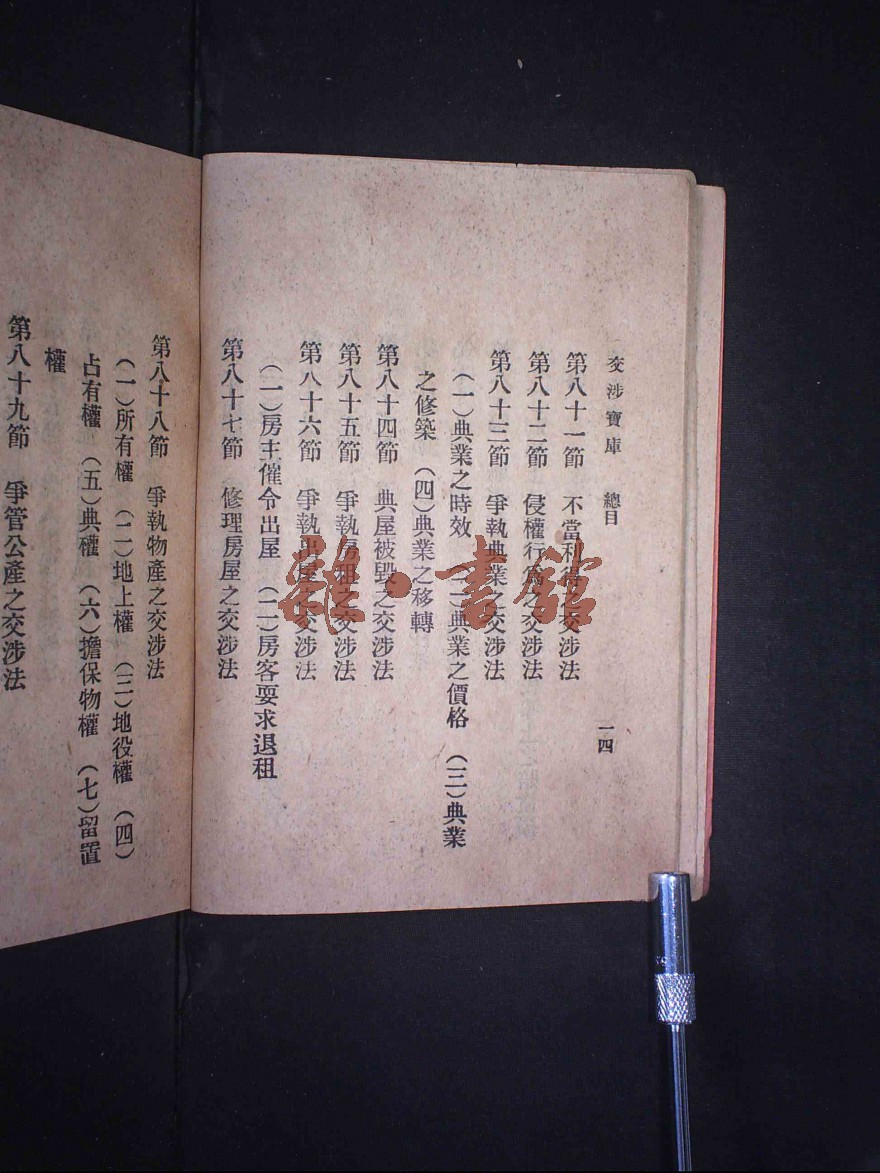 交涉寶庫　總目　一四
第八十一節　不當利得之交涉法
第八十二節　侵權行爲之交涉法
第八十三節　爭執典業之交涉法
（一）典業之時效　（二）典業之價格　（三）典業
之修築　（四）典業之移轉
第八十四節　典屋被毀之交涉法
第八十五節　爭執房租之交涉法
第八十六節　爭執出屋之交涉法
（一）房主催令出屋　（二）房客要求退租
第八十七節　修理房屋之交涉法
第八十八節　爭執物產之交涉法
（一）所有權　（二）地上權　（三）地役權　（四）
占有權　（五）典權　（六）擔保物權　（七）留置
權
第八十九節　爭管公產之交涉法
雜·書館